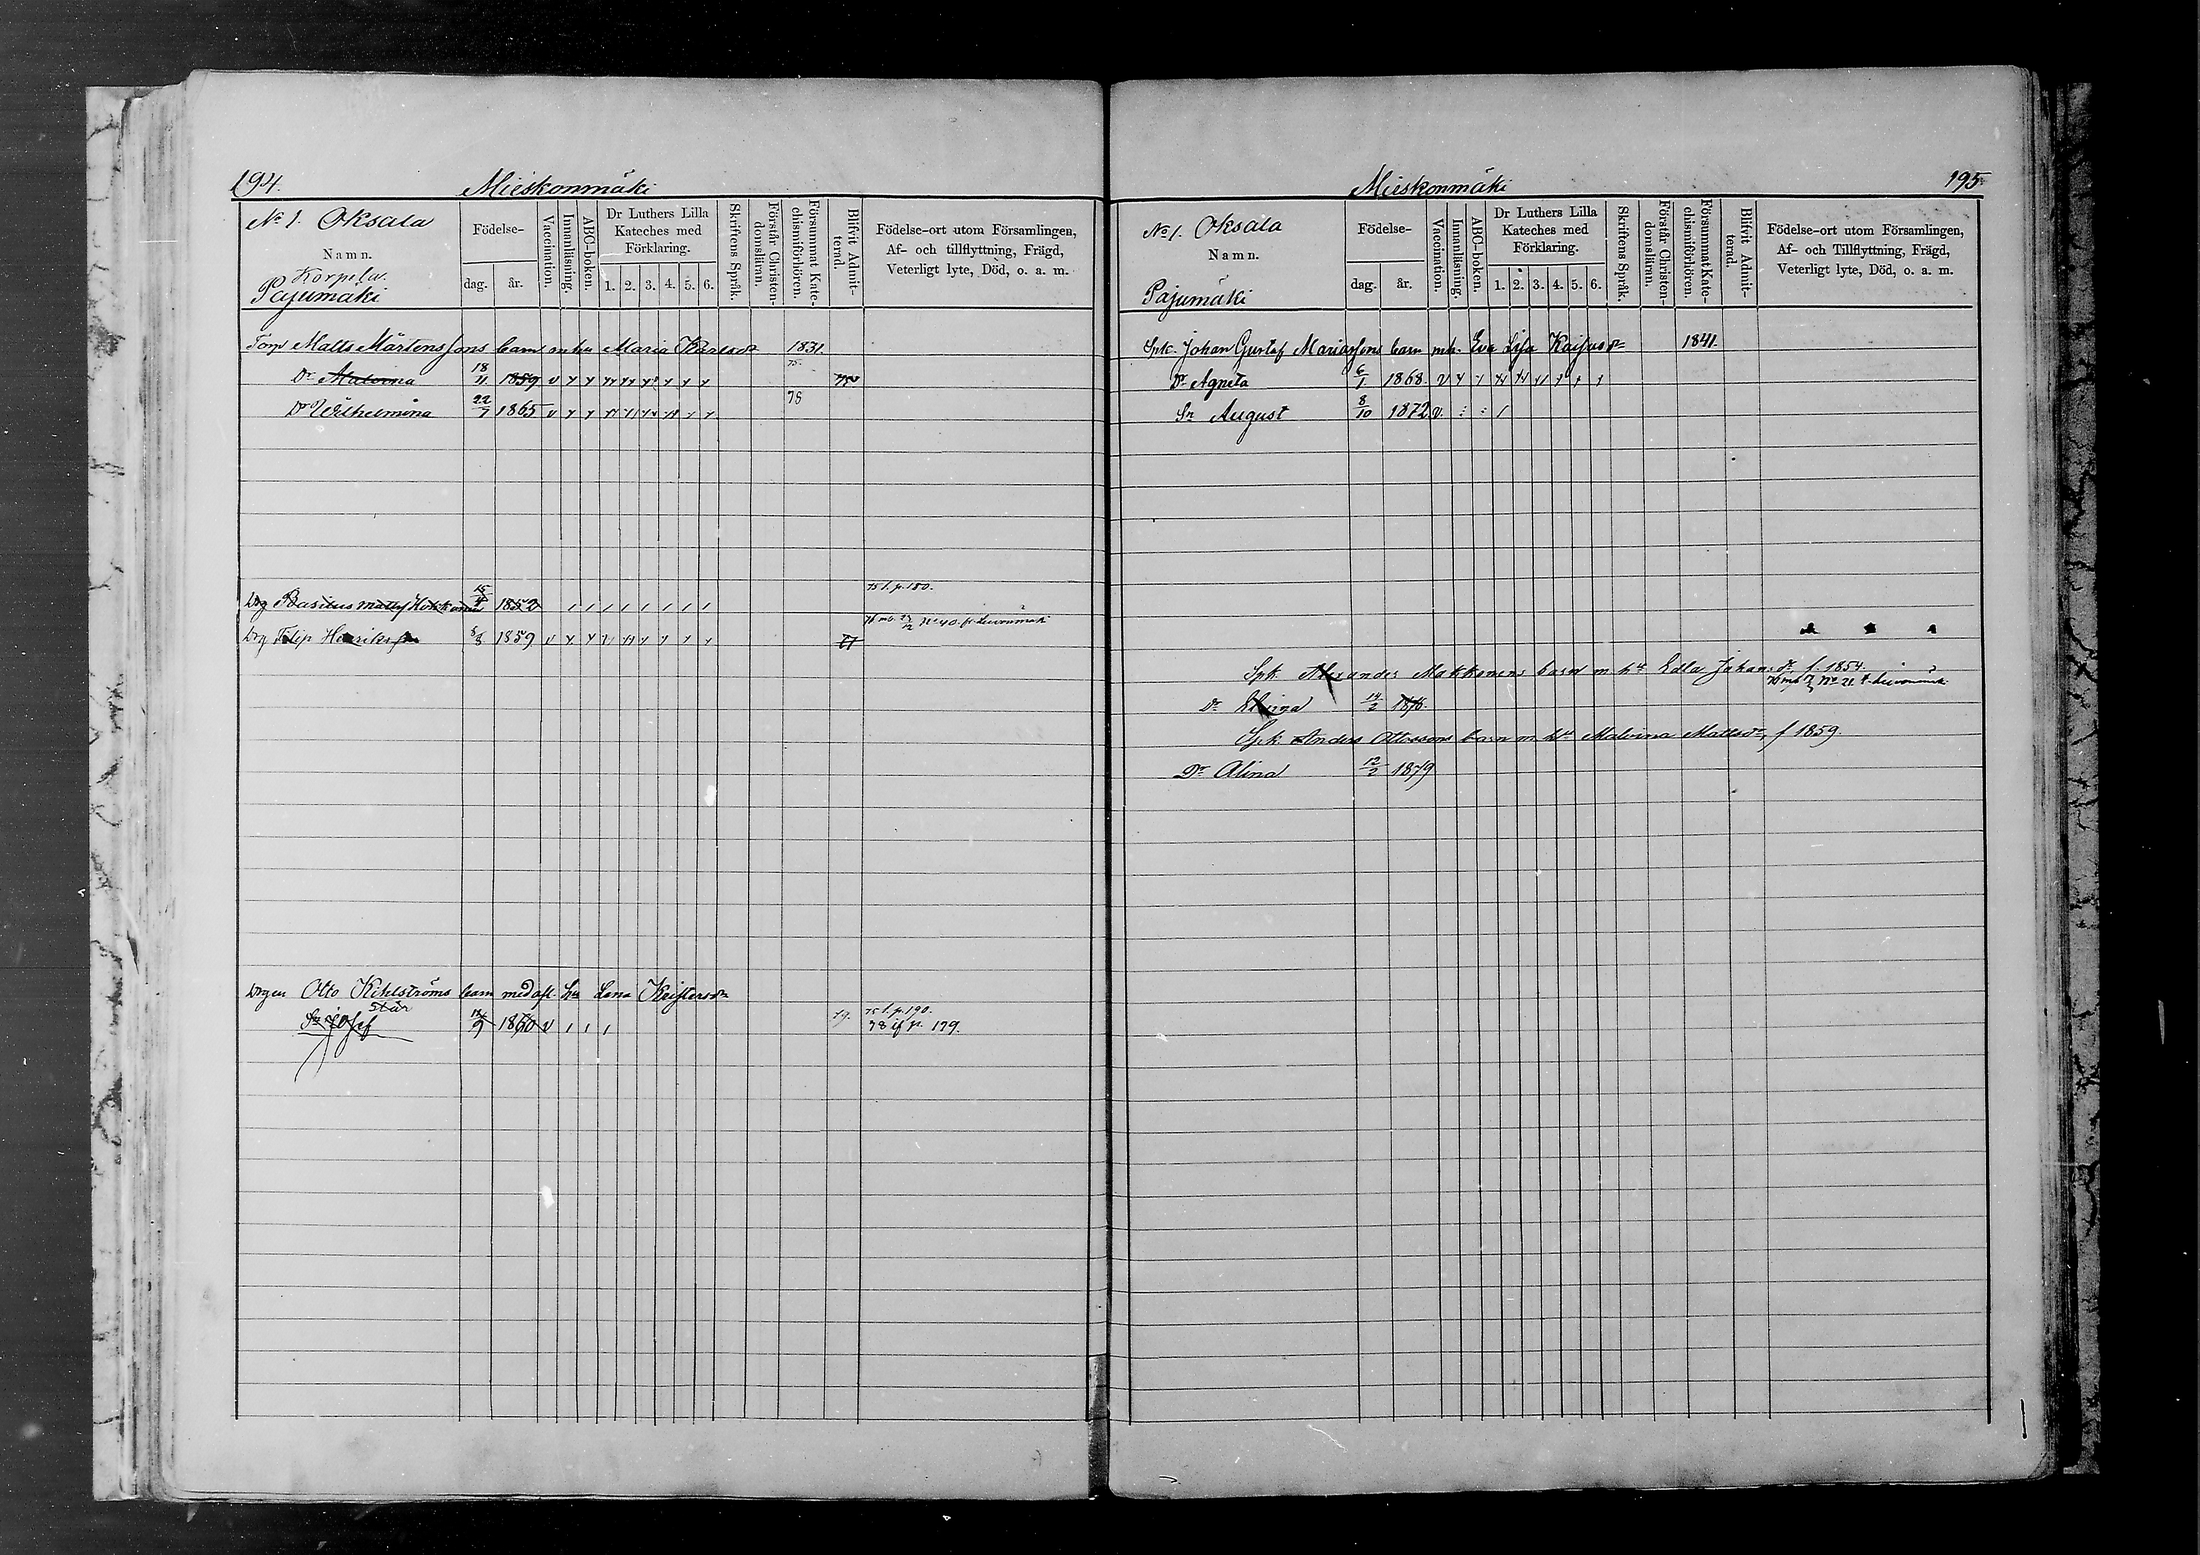 194. Mieskonmäki
No 1. Oksala
Namn.
Korpela.
Pajumäki
Födelse-
dag. år.
Vaccination.
Innanläsning.
ABC-boken.
Dr Luthers Lilla
Kateches med
Förklaring.
1. 2. 3. 4. 5. 6.
Skriftens Språk.
Förstår Christen-
domslüran.
Försummat Kate-
chismiförhören.
Blifvit Admit-
terad.
Födelse-ort utom Församlingen,
Af- och tillflyttning, Frägd,
Veterligt lyte, Död, o. a. m.
Torp Matts Mårtenssons barn m hu Maria Karlsdr 1831.
75.
Dr Malvina 18/11 1859 v
Dr Wilhelmina 22/7 1865 v
78
75 t. p. 180.
Drg Basilius Mattss Hokkanen 15/4 1852
No 40. fr.
Drg Filip Henriksson 8/8 1859 v
Drgen Otto Kihlströms barn med afl. hu Lena Kristersdr
står
75 t. p. 190.
Sn Josef 1860 v 79. 78 if p. 179.
Mieskonmäki 195
No 1. Oksala
Namn.
Pajumäki
Födelse-
dag. år.
Vaccination.
Innanläsning.
ABC-boken.
Dr Luthers Lilla
Kateches med
Förklaring.
1. 2. 3. 4. 5. 6.
Skriftens Språk.
Förstår Christen-
domsläran.
Försummat Kate-
chismiförhören.
Blifvit Admit-
terad.
Födelse-ort utom Församlingen,
Af- och Tillflyttning, Frägd,
Veterligt lyte, Död, o. a. m.
Spk. Johan Gustaf Mariassons barn mh. Eva Lisa Kaijusdr 1841.
Dr Agneta 6/1 1868. v
Sn August 8/10 1872 v.
Spk. Alexander Makkonens barn m hu Edla Johansdr f. 1854.
No 21
Dr 14/2 1876.
Spk. Anders Ottossons barn m. hu Malvina Mattsdr, f 1859.
Dr Alina 12/2 1879